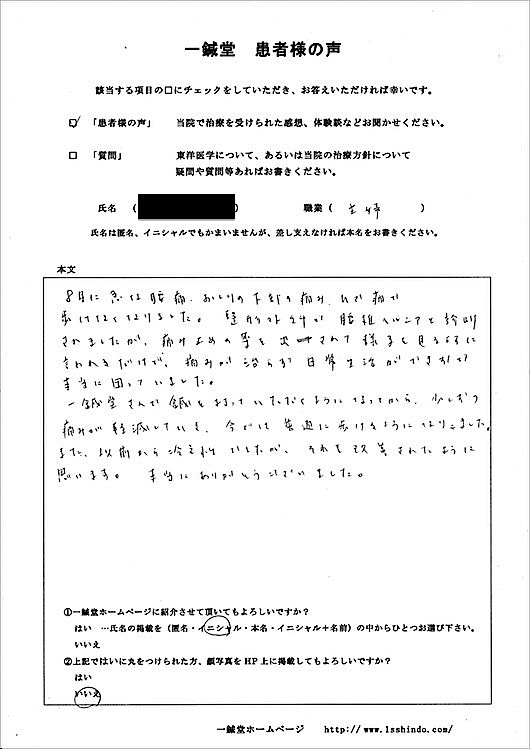 一鍼堂 患者様の声
該当する項目の□にチェックをしていただき、お答えいただければ幸いです。
☑ 「患者様の声」 当院で治療を受けられた感想、体験談などお聞かせください。
□ 「質問」 東洋医学について、あるいは当院の治療方針について
疑問や質問等あればお書きください。
氏名 ( ) 職業 ( 主婦 )
氏名は匿名、イニシャルでもかまいませんが、差し支えなければ本名をお書きください。
本文
8月に急な腰痛、おしりの下部の痛み、ひざ痛で
歩けなくなりました。整形外科で腰椎ヘルニアと診断
されましたが、痛み止めの薬を出されて様子を見るように
言われるだけで、痛みが治らず日常生活ができなくて
本当に困っていました。
一鍼堂さんで鍼を打っていただくようになってから、少しずつ
痛みが軽減していき、今では普通に歩けるようになりました。
また、以前から冷え性でしたが、それも改善されたように
思います。 本当にありがとうございました。
①一鍼堂ホームページに紹介させて頂いてもよろしいですか?
はい …氏名の掲載を(匿名・イニシャル・本名・イニシャル+名前)の中からひとつお選び下さい。
いいえ
②上記ではいに丸をつけられた方、顔写真をHP上に掲載してもよろしいですか?
はい
いいえ
一鍼堂ホームページ http://www.1sshindo.com/